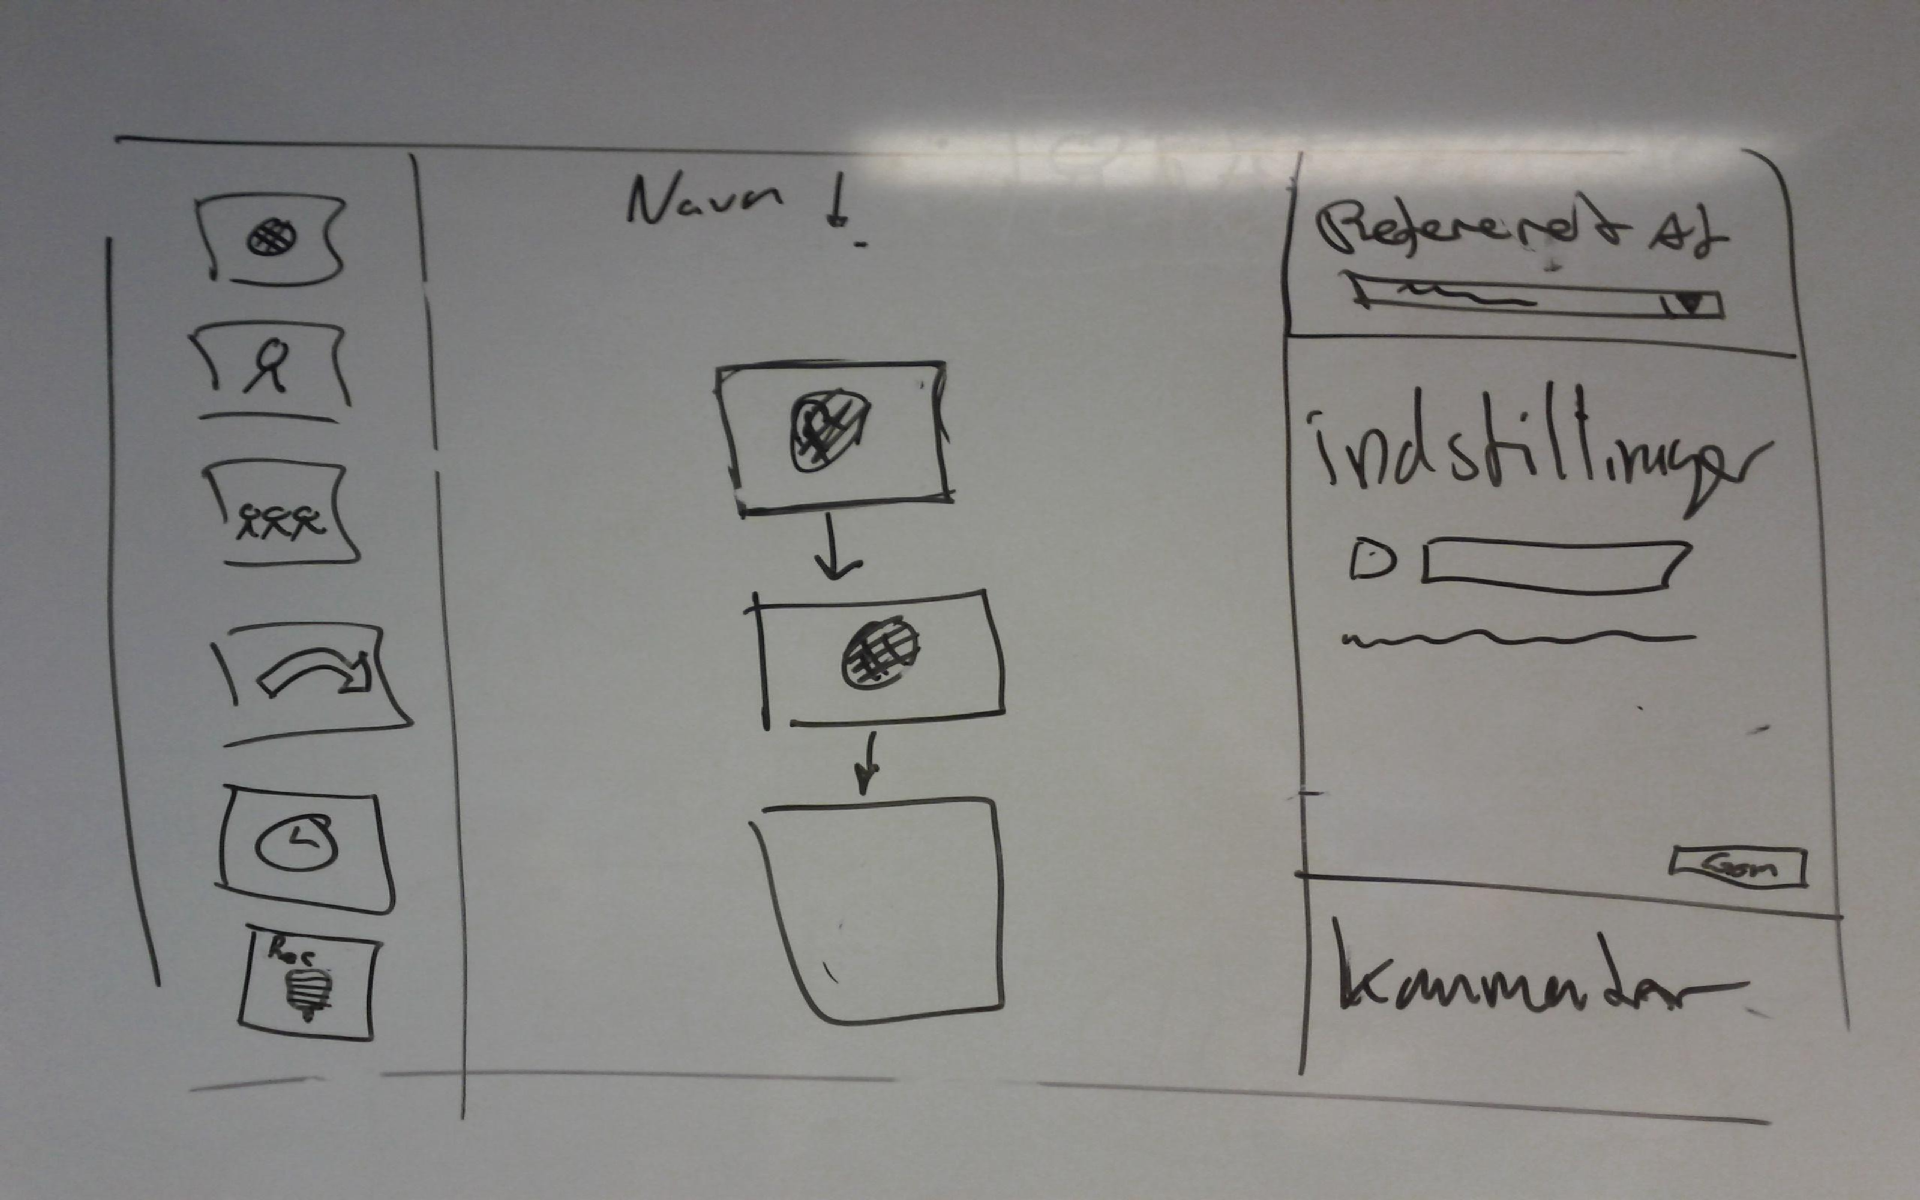 Navn
Refereret Af
indstillinger
Gem
kommentar